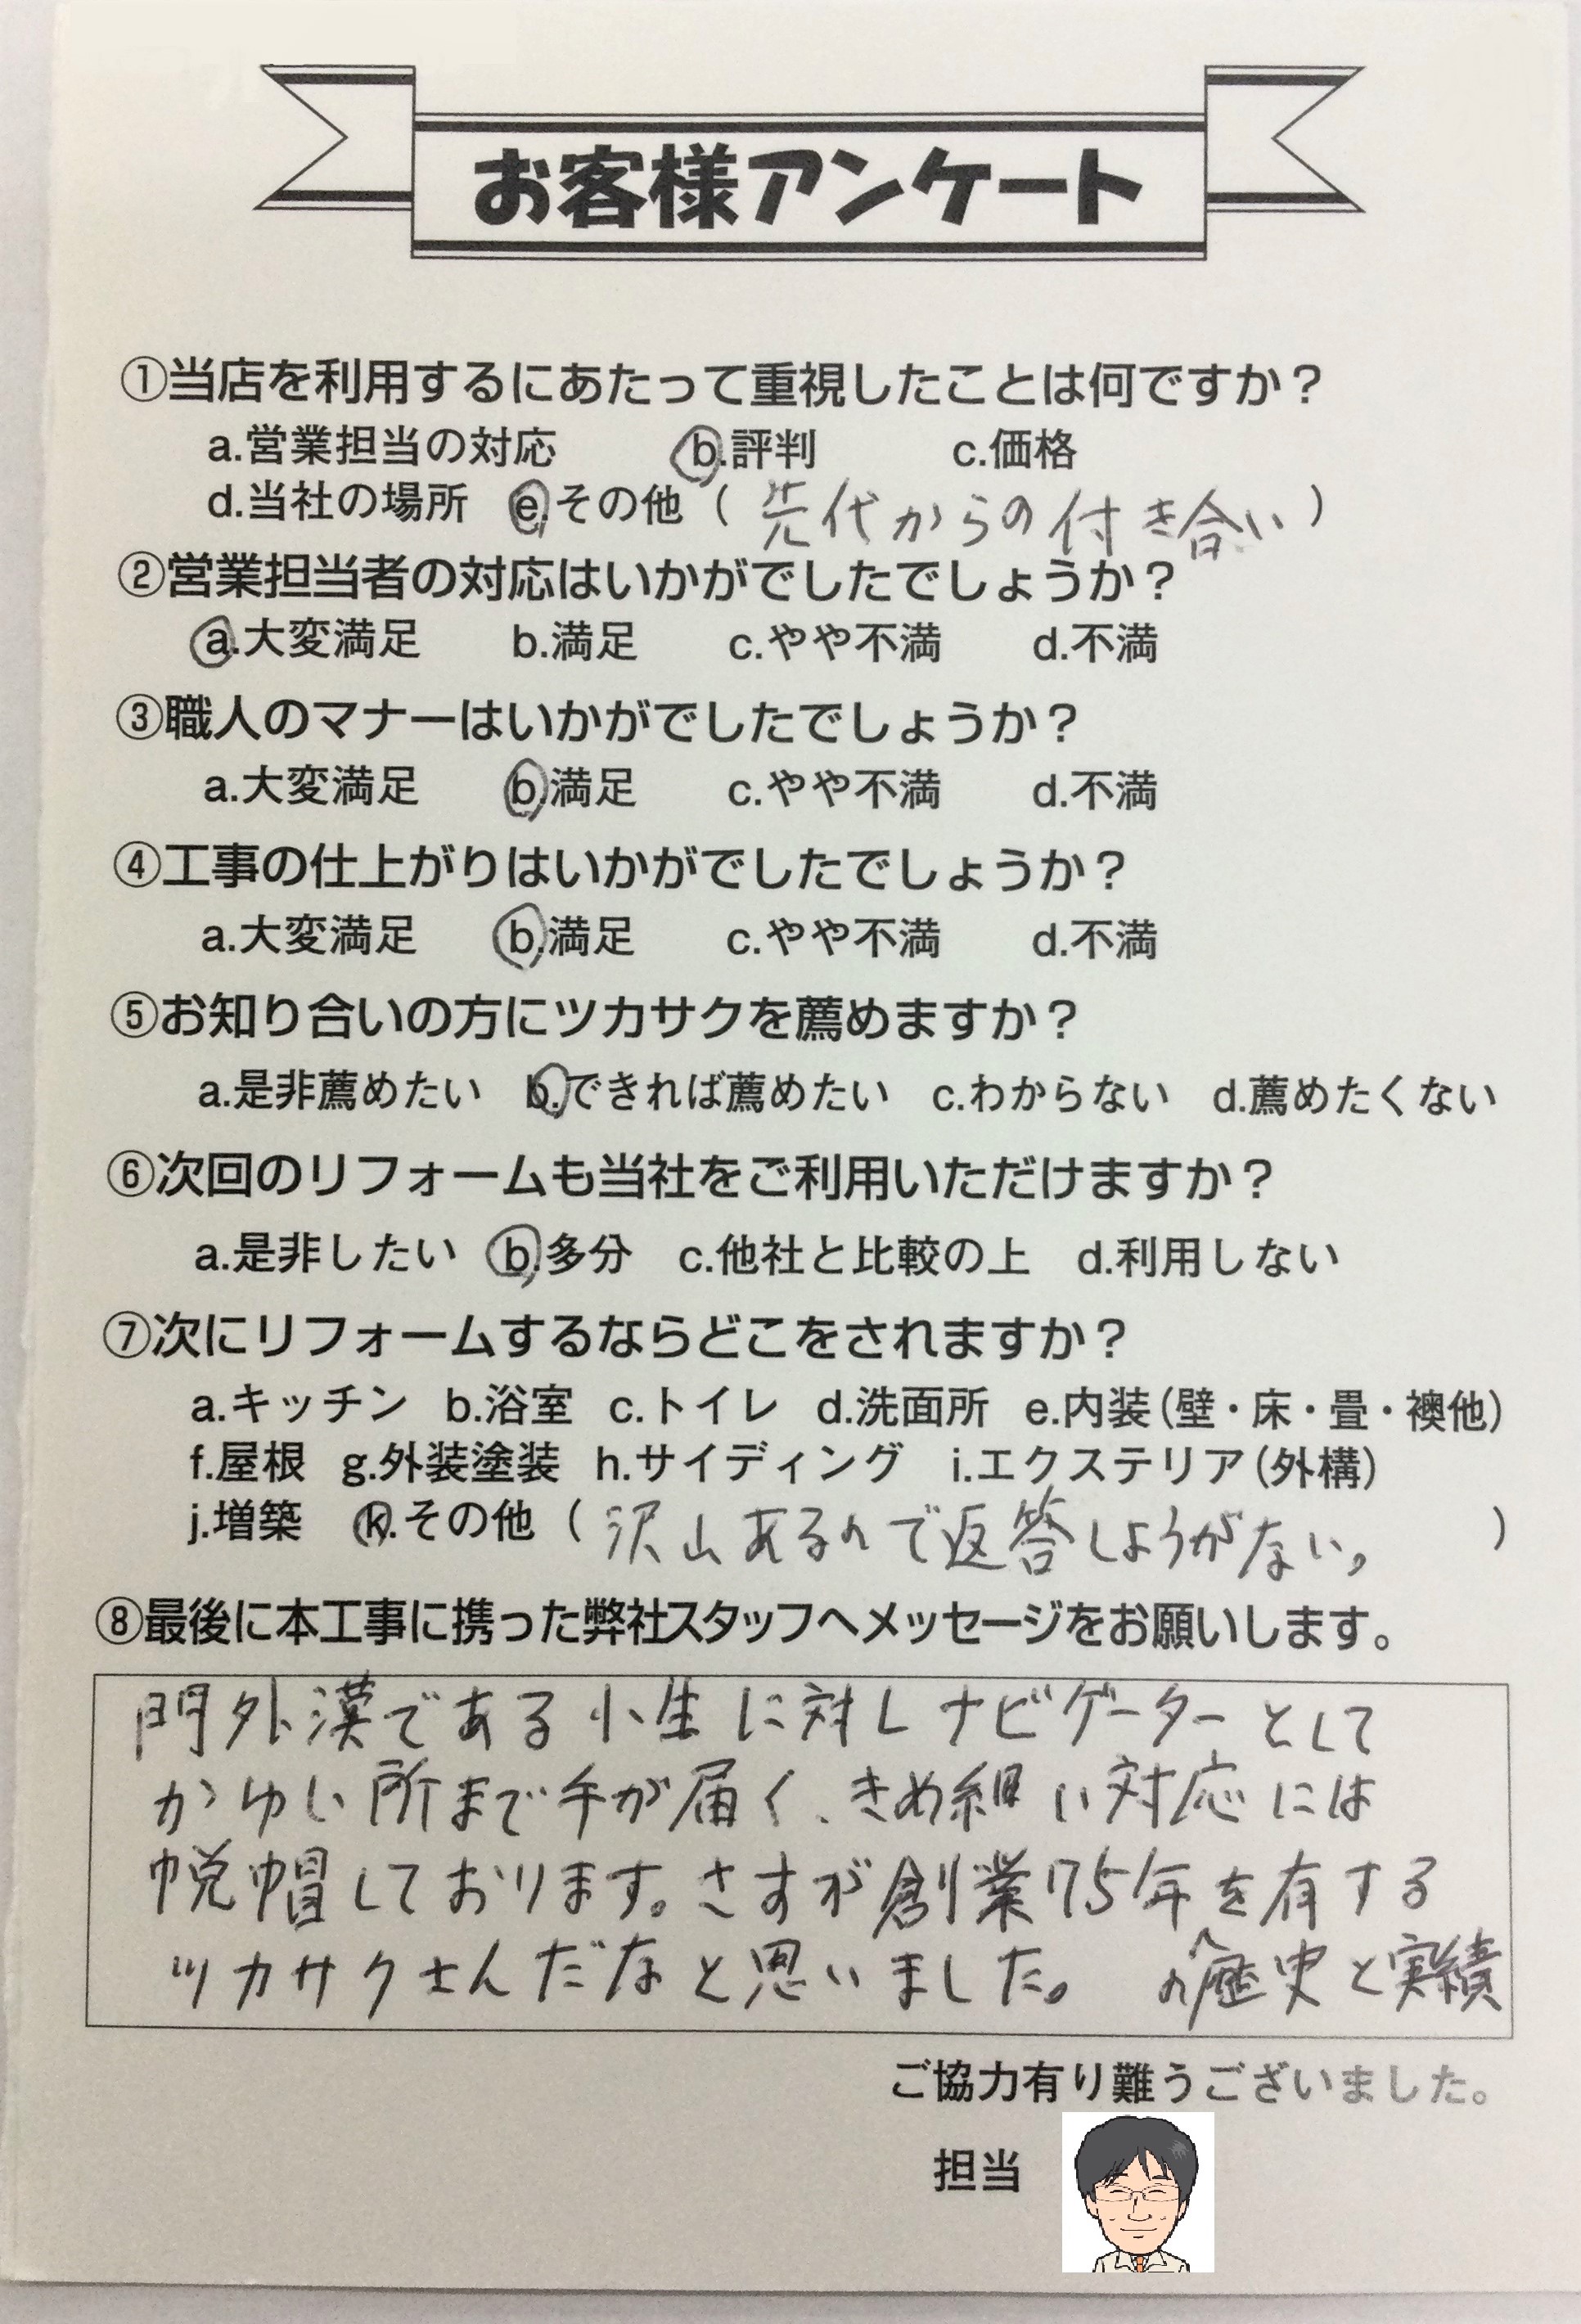 お客様アンケート
①当店を利用するにあたって重視したことは何ですか？
a.営業担当の対応 b.評判 c.価格
d.当社の場所 e.その他（先代からの付き合い）
②営業担当者の対応はいかがでしたでしょうか？
a.大変満足 b.満足 c.やや不満 d.不満
③職人のマナーはいかがでしたでしょうか？
a.大変満足 b.満足 c.やや不満 d.不満
④工事の仕上がりはいかがでしたでしょうか？
a.大変満足 b.満足 c.やや不満 d.不満
⑤お知り合いの方にツカサクを薦めますか？
a.是非薦めたい b.できれば薦めたい c.わからない d.薦めたくない
⑥次回のリフォームも当社をご利用いただけますか？
a.是非したい b.多分 c.他社と比較の上 d.利用しない
⑦次にリフォームするならどこをされますか？
a.キッチン b.浴室 c.トイレ d.洗面所 e.内装（壁・床・畳・襖他）
f.屋根 g.外装塗装 h.サイディング i.エクステリア（外構）
j.増築 k.その他（沢山あるので返答しようがない。）
⑧最後に本工事に携った弊社スタッフへメッセージをお願いします。
門外漢である小生に対しナビゲーターとして
かゆい所まで手が届く、きめ細い対応には
脱帽しております。さすが創業75年を有する
ツカサクさんだなと思いました。 の歴史と実績
ご協力有り難うございました。
担当